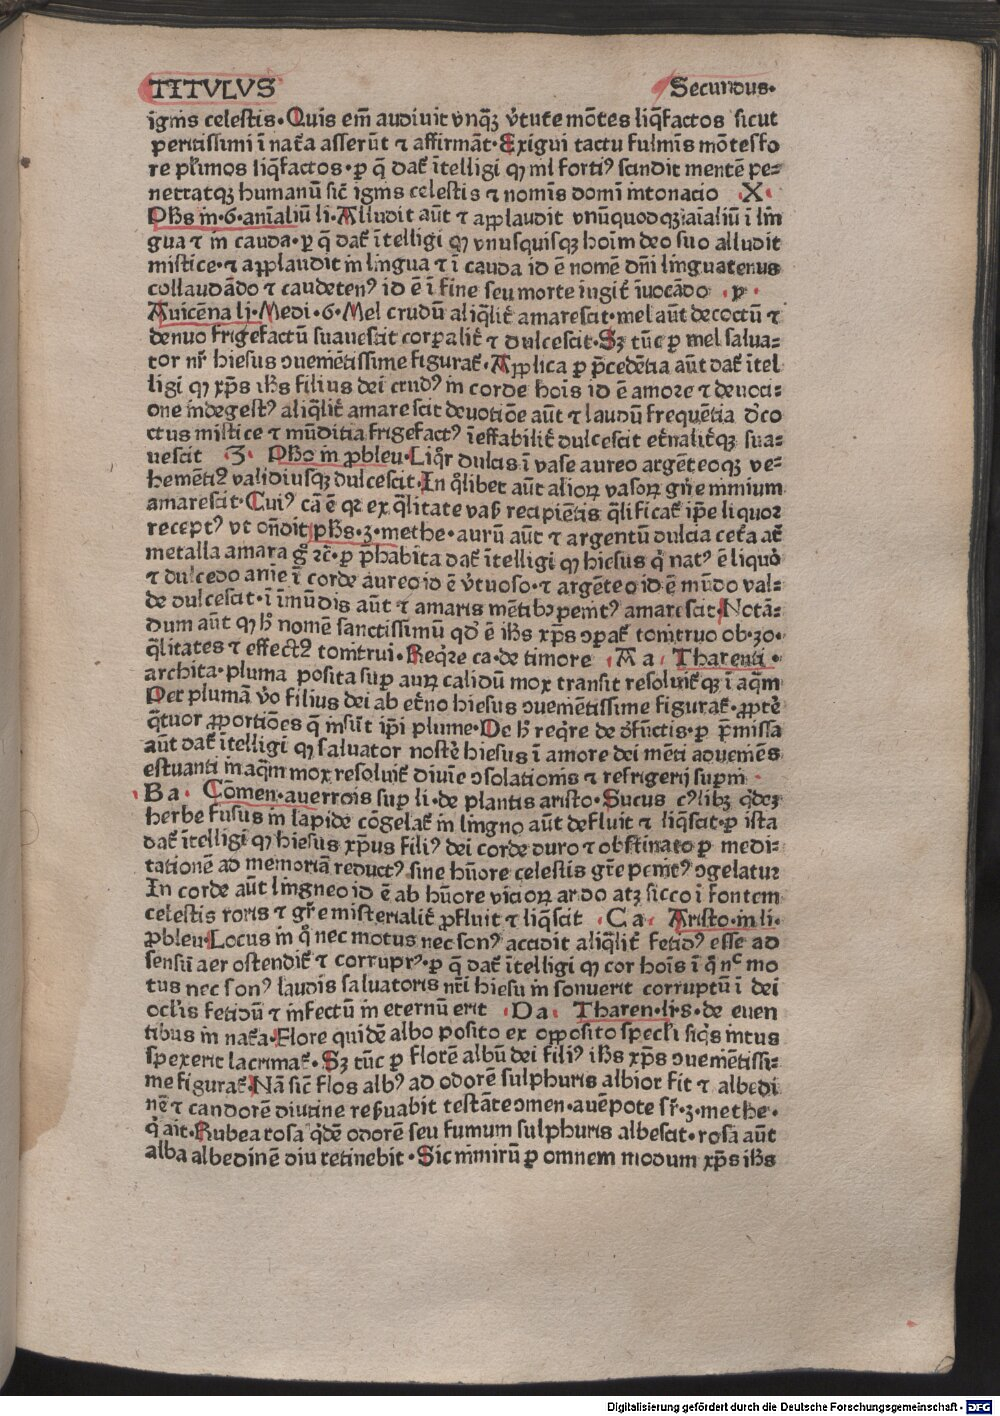 TITVLVS Secundus.
igīns celestis. Quis em̄ audiuit vnqȝ v̓tute mōtes liq̄factos sicut
peritissimi ī nat̃a asserūt ⁊ affirmāt. Exigui tactu fulmīs mōtes fo
re pl̓imos liq̄factos. ꝑ q̄ dat̃ ītelligi ꝙ nil fortiꝰ scandit mentē pe⸗
netratqȝ humanū sic̄ ignis celestis ⁊ nomīs domī intonacio X.
Ph̄s in. 6. anīaliū li. Alludit aūt ⁊ applaudit vnūquodqȝ aīaliū ī lin
gua ⁊ in cauda. ꝑ q̄ dat̃ ītelligi ꝙ vnusquisqȝ hoīm deo suo alludit
mistice. ⁊ applaudit in lingua ⁊ ī cauda id ē nomē dn̄i linguatenus
collaudādo ⁊ caudetenꝰ id ē ī fine seu morte iugit̃ īuocādo . p .
Auicēna li. Medi. 6. Mel crudū aliq̄lit̃ amarescit. mel aūt decoctū ⁊
denuo frigefactū suauescit corꝑalit̃ ⁊ dulcescit. Sȝ tūc ꝑ mel salua⸗
tor nr̄ hiesus ↄueniētissime figurat̃. Applica ꝑ p̄cedētia aūt dat̃ ītel
ligi ꝙ xp̄s ih̄s filius dei crudꝰ in corde hois id ē amore ⁊ deuoti⸗
one indegestꝰ aliq̄lit̃ amarescit deuotiōe aūt ⁊ laudū frequētia d̓co
ctus mistice ⁊ mūditia frigefactꝰ īeffabilit̃ dulcescit et̓nalit̃qȝ sua⸗
uescit 3. Ph̄o in ꝓbleu. Liq̄r dulcis ī vase aureo argēteoqȝ ve⸗
hemētiꝰ validiusqȝ dulcescit. In q̄libet aūt alioꝝ vasoꝝ gn̄e nimium
amarescit. Cuiꝰ cā ē qꝛ ex q̄litate vasis recipiētis q̄lificat̃ ip̄e liquoꝛ
receptꝰ vt on̄dit ph̄s. 3. methe. aurū aūt ⁊ argentū dulcia cet̃a at̃
metalla amara gͦ ⁊c̄. ꝑ p̄habita dat̃ ītelligi ꝙ hiesus q̄ natꝰ ē liquor
⁊ dulcedo aīe ī corde aureo id ē v̓tuoso. ⁊ argēteo id ē mūdo val⸗
de dulcescit. ī īmūdis aūt ⁊ amaris mētibꝰ penitꝰ amarescit. Notā⸗
dum aūt ꝙ h̄ nomē sanctissimū qd̓ ē ih̄s xp̄s ↄꝑat̃ tonitruo ob. 30.
q̄litates ⁊ effectꝰ tonitrui. Req̄re ca. de timore . A a . Tharenti .
archita. pluma posita suꝑ auꝝ calidū mox transit resoluit̃qȝ ī aq̄m
Per plumā v̓o filius dei ab et̓no hiesus ↄueniētissime figurat̃. ꝓpter
q̄tuor ꝓportiōes q̄ insūt ip̄i plume. De h̄ req̄re de d̓fūctis. ꝑ p̄missa
aūt dat̃ ītelligi ꝙ saluator noster hiesus ī amore dei mēti adueniēs
estuanti in aq̄m mox resoluit̃ diuīe ↄsolationis ⁊ refrigerij suꝑni .
. B a . Cōmen. auerrois suꝑ li. de plantis aristo. Sucus cꝰlibȝ q̄dēȝ
herbe fusus in lapide cōgelat̃ in lingno aūt defluit ⁊ liq̄scit. ꝑ ista
dat̃ ītelligi ꝙ hiesus xp̄us filiꝰ dei corde duro ⁊ obstinato ꝑ medi⸗
tationē ad memoriā reductꝰ sine hūore celestis gr̄e penitꝰ ↄgelatur
In corde aūt lingneo id ē ab hūore vicioꝝ arido atqȝ sicco ī fontem
celestis roris ⁊ gr̄e misterialit̃ ꝓfluit ⁊ liq̄scit . C a . Aristo. in li.
ꝓbleu. Locus in q̄ nec motus nec sonꝰ accidit aliq̄lit̃ fetidꝰ esse ad
sensū aer ostendit̃ ⁊ corruptꝰ. ꝑ q̄ dat̃ ītelligi ꝙ cor hois ī q̄ nᶜ mo
tus nec sonꝰ laudis saluatoris nr̄i hiesu insonuerit corruptū ī dei
ocl̓is fetidū ⁊ infectū in eternū erit . D a . Tharen. li. s. de euen
tibus in nat̃a. Flore quidē albo posito ex opposito specl̓i siq̄s intus
spexerit lacrimat̃. Sȝ tūc ꝑ florē albū dei filiꝰ ih̄s xp̄s ↄueniētissi⸗
me figurat̃. Nā sic̄ flos albꝰ ad odorē sulphuris albior fit ⁊ albedi
nē ⁊ candorē diutine reßuabit testāte ↄmen. auēpote sr̄. 3. methe.
q̄ ait. Rubea rosa q̄dē odorē seu fumum sulphuris albescit. rosa aūt
alba albedinē diu retinebit. Sic nimirū ꝑ omnem modum xp̄s ih̄s
Digitalisierung gefördert durch die Deutsche Forschungsgemeinschaft - DFG